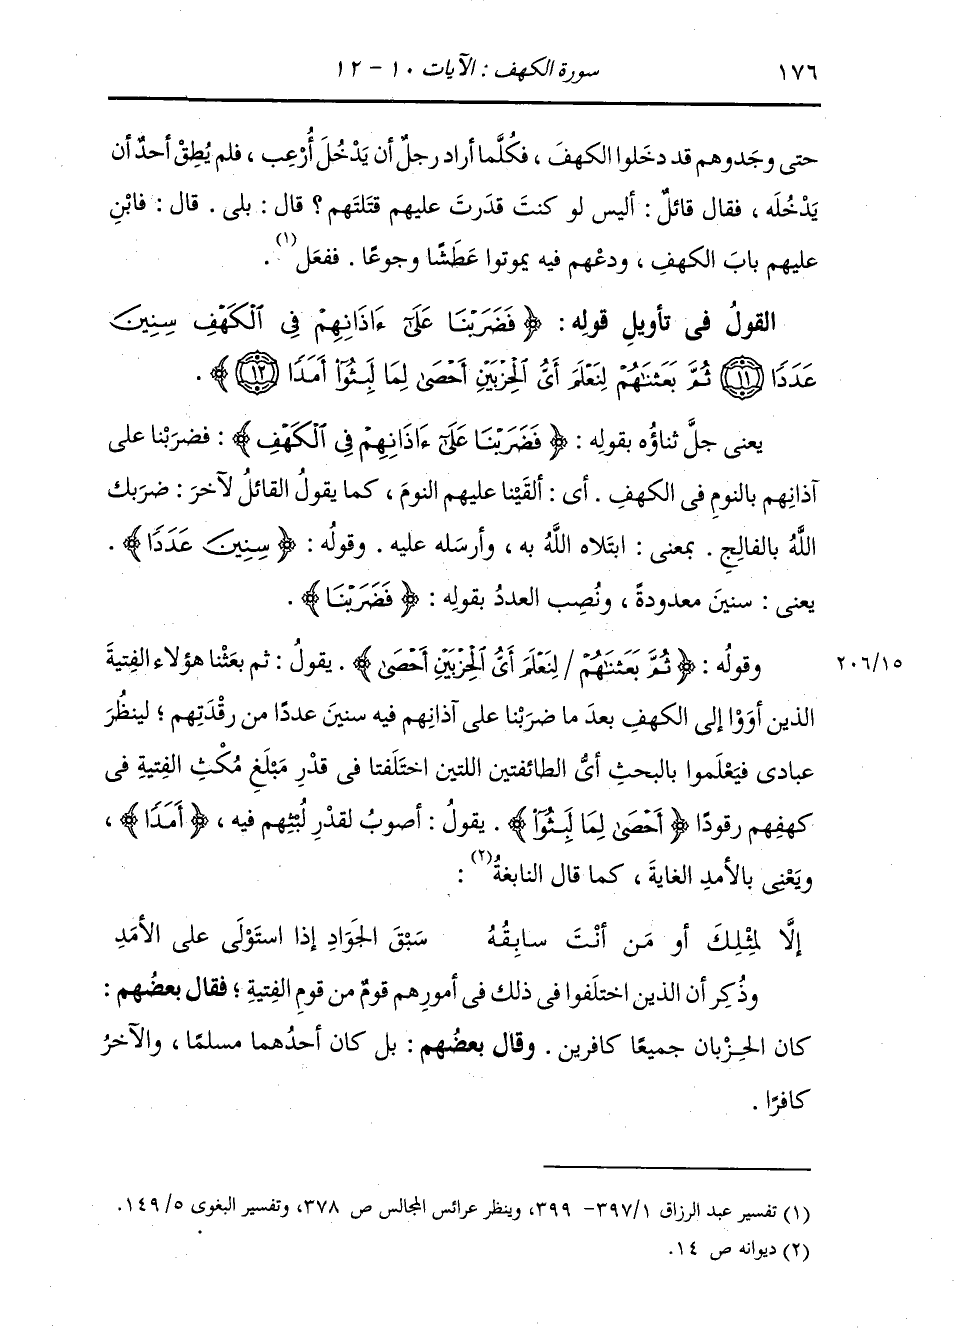 ١٧٦ سورة الكهف : الآيات ١٠ - ١٢
حتى وجَدوهم قد دخَلوا الكهفَ ، فكُلَّما أراد رجلٌ أن يَدْخُلَ أُرْعِب ، فلم يُطِقْ أحدٌ أن
يَدْخُلَه ، فقال قائلٌ : أليس لو كنتَ قدَرتَ عليهم قتَلتَهم ؟ قال : بلى . قال : فابْنِ
عليهم بابَ الكهفِ ، ودعْهم فيه يموتوا عَطَشًا وجوعًا . ففعَل(١) .
القولُ فى تأويلِ قولِه : ﴿ فَضَرَبْنَا عَلَىٰٓ ءَاذَانِهِمْ فِى ٱلْكَهْفِ سِنِينَ
عَدَدًا ١١ ثُمَّ بَعَثْنَٰهُمْ لِنَعْلَمَ أَىُّ ٱلْحِزْبَيْنِ أَحْصَىٰ لِمَا لَبِثُوٓا۟ أَمَدًا ١٢ ﴾ .
يعنى جلَّ ثناؤُه بقولِه : ﴿ فَضَرَبْنَا عَلَىٰٓ ءَاذَانِهِمْ فِى ٱلْكَهْفِ ﴾ : فضرَبْنا على
آذانِهم بالنومِ فى الكهفِ . أى : ألقَيْنا عليهم النومَ ، كما يقولُ القائلُ لآخرَ : ضرَبك
اللَّهُ بالفالجِ . بمعنى : ابتَلاه اللَّهُ به ، وأرسَله عليه . وقولُه : ﴿ سِنِينَ عَدَدًا ﴾ .
يعنى : سنينَ معدودةً ، ونُصِب العددُ بقولِه : ﴿ فَضَرَبْنَا ﴾ .
وقولُه : ﴿ ثُمَّ بَعَثْنَٰهُمْ / لِنَعْلَمَ أَىُّ ٱلْحِزْبَيْنِ أَحْصَىٰ ﴾ . يقولُ : ثم بعَثْنا هؤلاء الفِتيةَ ٢٠٦/١٥
الذين أوَوْا إلى الكهفِ بعدَ ما ضرَبْنا على آذانِهم فيه سنينَ عددًا من رقْدَتِهم ؛ لينظُرَ
عبادى فيَعْلَموا بالبحثِ أىُّ الطائفتين اللتين اختَلَفتا فى قدْرِ مَبْلَغِ مُكْثِ الفِتيةِ فى
كهفِهم رقودًا ﴿ أَحْصَىٰ لِمَا لَبِثُوٓا۟ ﴾ . يقولُ : أصوبُ لقدْرِ لُبْثِهم فيه ، ﴿ أَمَدًا ﴾ ،
ويَعْنِى بالأمدِ الغايةَ ، كما قال النابغةُ(٢) :
إلَّا لمِثْلِكَ أو مَن أنْتَ سابِقُهُ سَبْقَ الجَوَادِ إذا استَوْلَى على الأمَدِ
وذُكِر أن الذين اختلَفوا فى ذلك فى أمورِهم قومٌ من قومِ الفِتيةِ ؛ فقال بعضُهم :
كان الحِزْبان جميعًا كافرين . وقال بعضُهم : بل كان أحدُهما مسلمًا ، والآخرُ
كافرًا .
(١) تفسير عبد الرزاق ٣٩٧/١- ٣٩٩، وينظر عرائس المجالس ص ٣٧٨، وتفسير البغوى ١٤٩/٥.
(٢) ديوانه ص ١٤.